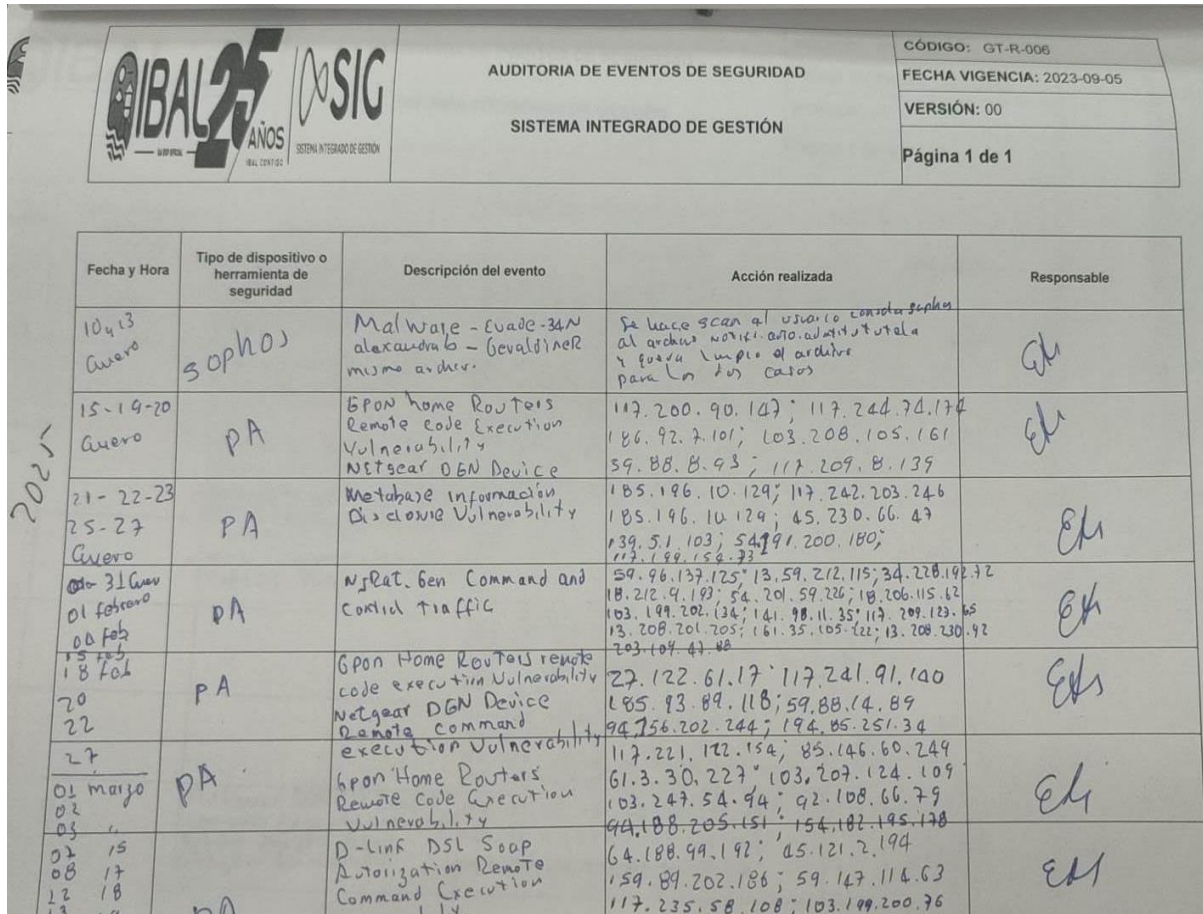 IBAL 25 AÑOS
IBAL CONTIGO
SIG
SISTEMA INTEGRADO DE GESTIÓN
AUDITORIA DE EVENTOS DE SEGURIDAD
SISTEMA INTEGRADO DE GESTIÓN
CÓDIGO: GT-R-006
FECHA VIGENCIA: 2023-09-05
VERSIÓN: 00
Página 1 de 1
2025
Fecha y Hora
Tipo de dispositivo o
herramienta de
seguridad
Descripción del evento
Acción realizada
Responsable
10 y 13
Enero
sophos
Malware - Evade-34N
alexandrab - GeraldineR
mismo archiv.
Se hace scan al usuario consola sophos
al archivo
y queda limpio el archivo
para los dos casos
15-19-20
Enero
PA
GPON home Routers
Remote code Execution
Vulnerability
Netgear DGN Device
117.200.90.147; 117.244.74.174
186.92.7.101; 103.208.105.161
59.88.8.93; 117.209.8.139
21-22-23
25-27
Enero
PA
Metabase Información
Disclosure Vulnerability
185.196.10.129; 117.242.203.246
185.196.10.129; 45.230.66.47
139.5.1.103;
117.199.154.73
31 Ener
01 febrero
Feb
PA
NjRat.Gen Command and
Control Traffic
59.96.137.125; 13.59.212.115; 34.228.192.72
18.212.9.193; 54.201.59.226; 18.206.115.62
103.199.202.134; 141.98.11.35; 117.209.123.65
13.208.201.205; 161.35.105.122; 13.208.230.92
203.109.47.88
15 Feb
18 Feb
20
22
PA
Gpon Home Routers remote
code execution Vulnerability
Netgear DGN Device
Remote command
execution Vulnerability
27.122.61.17; 117.241.91.140
185.93.89.118; 59.88.14.89
94.156.202.244; 194.85.251.34
27
01 marzo
02
03 "
PA
Gpon Home Routers
Remote Code Execution
Vulnerability
117.221.122.154; 85.146.60.249
61.3.30.227; 103.207.124.109
103.247.54.94; 92.108.66.79
94.188.205.151; 154.182.195.178
07 15
08 17
12 18
13
PA
D-Link DSL Soap
Autorization Remote
Command Execution
64.188.99.192; 45.121.2.194
159.89.202.186; 59.147.114.63
117.235.58.108; 103.199.200.76